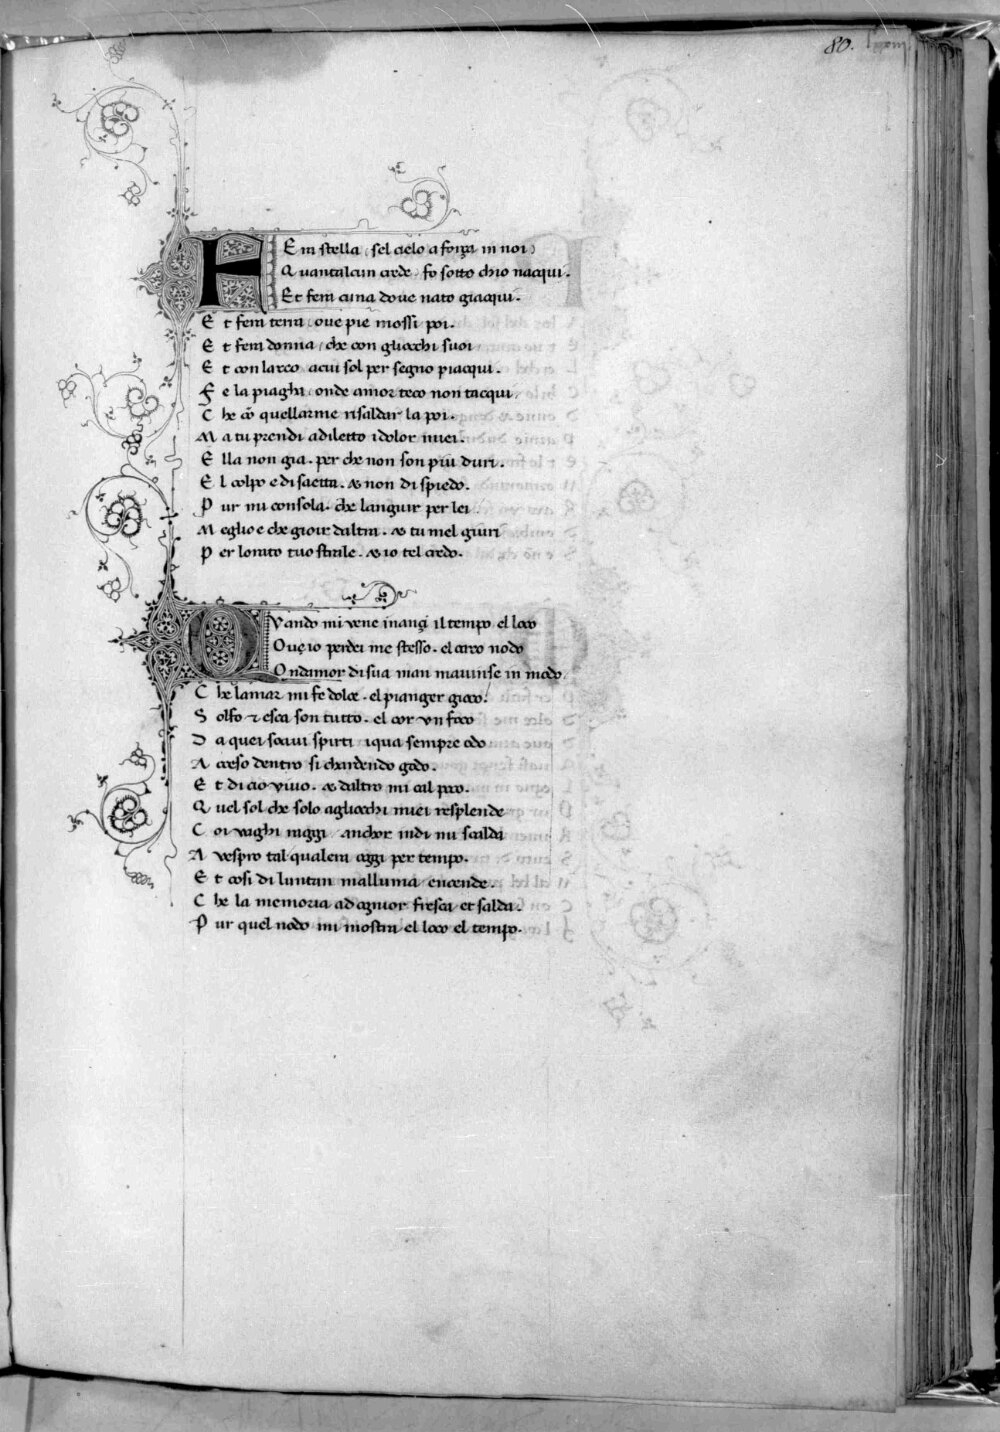 80.
FEra stella, sel cielo a força in noi
Quantalcun crede, fo sotto chio nacqui.
Et fera cuna doue nato giacqui.
Et fera terra, oue pie mossi poi.
Et fera donna, che con gliocchi suoi
Et con larco acui sol per segno piacqui.
Fe la piaga, onde amor teco non tacqui
Che cō quellarme risaldar la poi.
Ma tu prendi a diletto i dolor miei.
Ella non gia. per che non son piu duri.
El colpo e di saetta. & non di spiedo.
Pur mi consola. che languir per lei
Meglio e che gioir daltra. & tu mel giuri
Per lorato tuo strale. & io tel credo.
QVando mi vene inançi il tempo el loco
Oue io perdei me stesso. el caro nodo
Ondamor di sua man mauinse in modo
Che lamar mi fe dolce. el pianger gioco.
Solfo ⁊ esca son tutto. el cor vn foco
Da quei soaui spirti iqua sempre odo
Acceso dentro si chardendo godo.
Et di cio viuo. & daltro mi cal poco.
Quel sol che solo agliocchi miei resplende
Coi vaghi raggi anchor indi mi scalda
A vespro tal qualera oggi per tempo.
Et cosi di luntan malluma encende.
Che la memoria ad ognior fresca et salda.
Pur quel nodo mi mostra el loco el tempo.